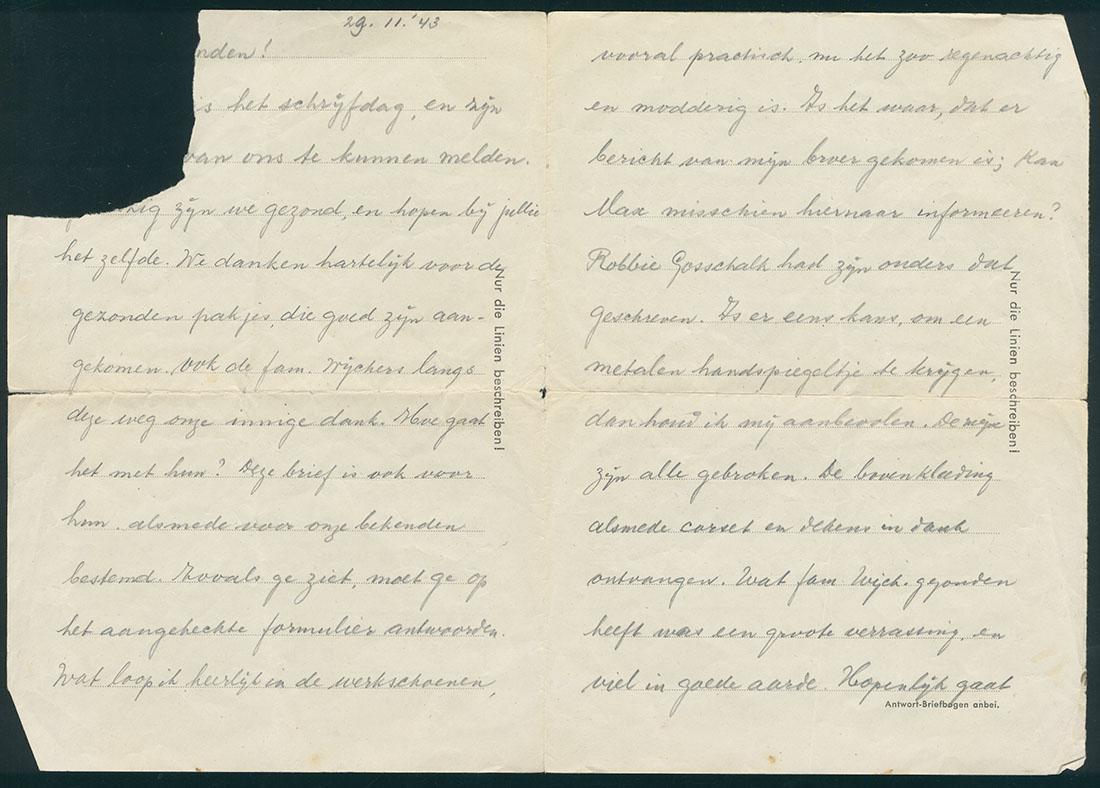 29. 11. '43
nden!
is het schrijfdag, en zijn
van ons te kunnen melden.
zijn we gezond, en hopen bij jullie
het zelfde. We danken hartelijk voor de
gezonden pakjes, die goed zijn aan-
gekomen. Ook de fam. Wijchers langs
deze weg onze innige dank. Hoe gaat
het met hun? Deze brief is ook voor
hun, alsmede voor onze bekenden
bestemd. Zooals ge ziet, moet ge op
het aangehechte formulier antwoorden.
Wat loop ik heerlijk in de werkschoenen,
Nur die Linien beschreiben!
vooral practisch, nu het zoo regenachtig
en modderig is. Is het waar, dat er
bericht van mijn broer gekomen is; Kan
Max misschien hiernaar informeeren?
Robbie Gosschalk had zijn ouders dat
geschreven. Is er eens kans, om een
metalen handspiegeltje te krijgen,
dan houd ik mij aanbevolen. De
zijn alle gebroken. De bovenkleeding
alsmede corset en dekens in dank
ontvangen. Wat fam. Wijch. gezonden
heeft was een groote verrassing, en
viel in goede aarde. Hopenlijk gaat
Nur die Linien beschreiben!
Antwort-Briefbogen anbei.